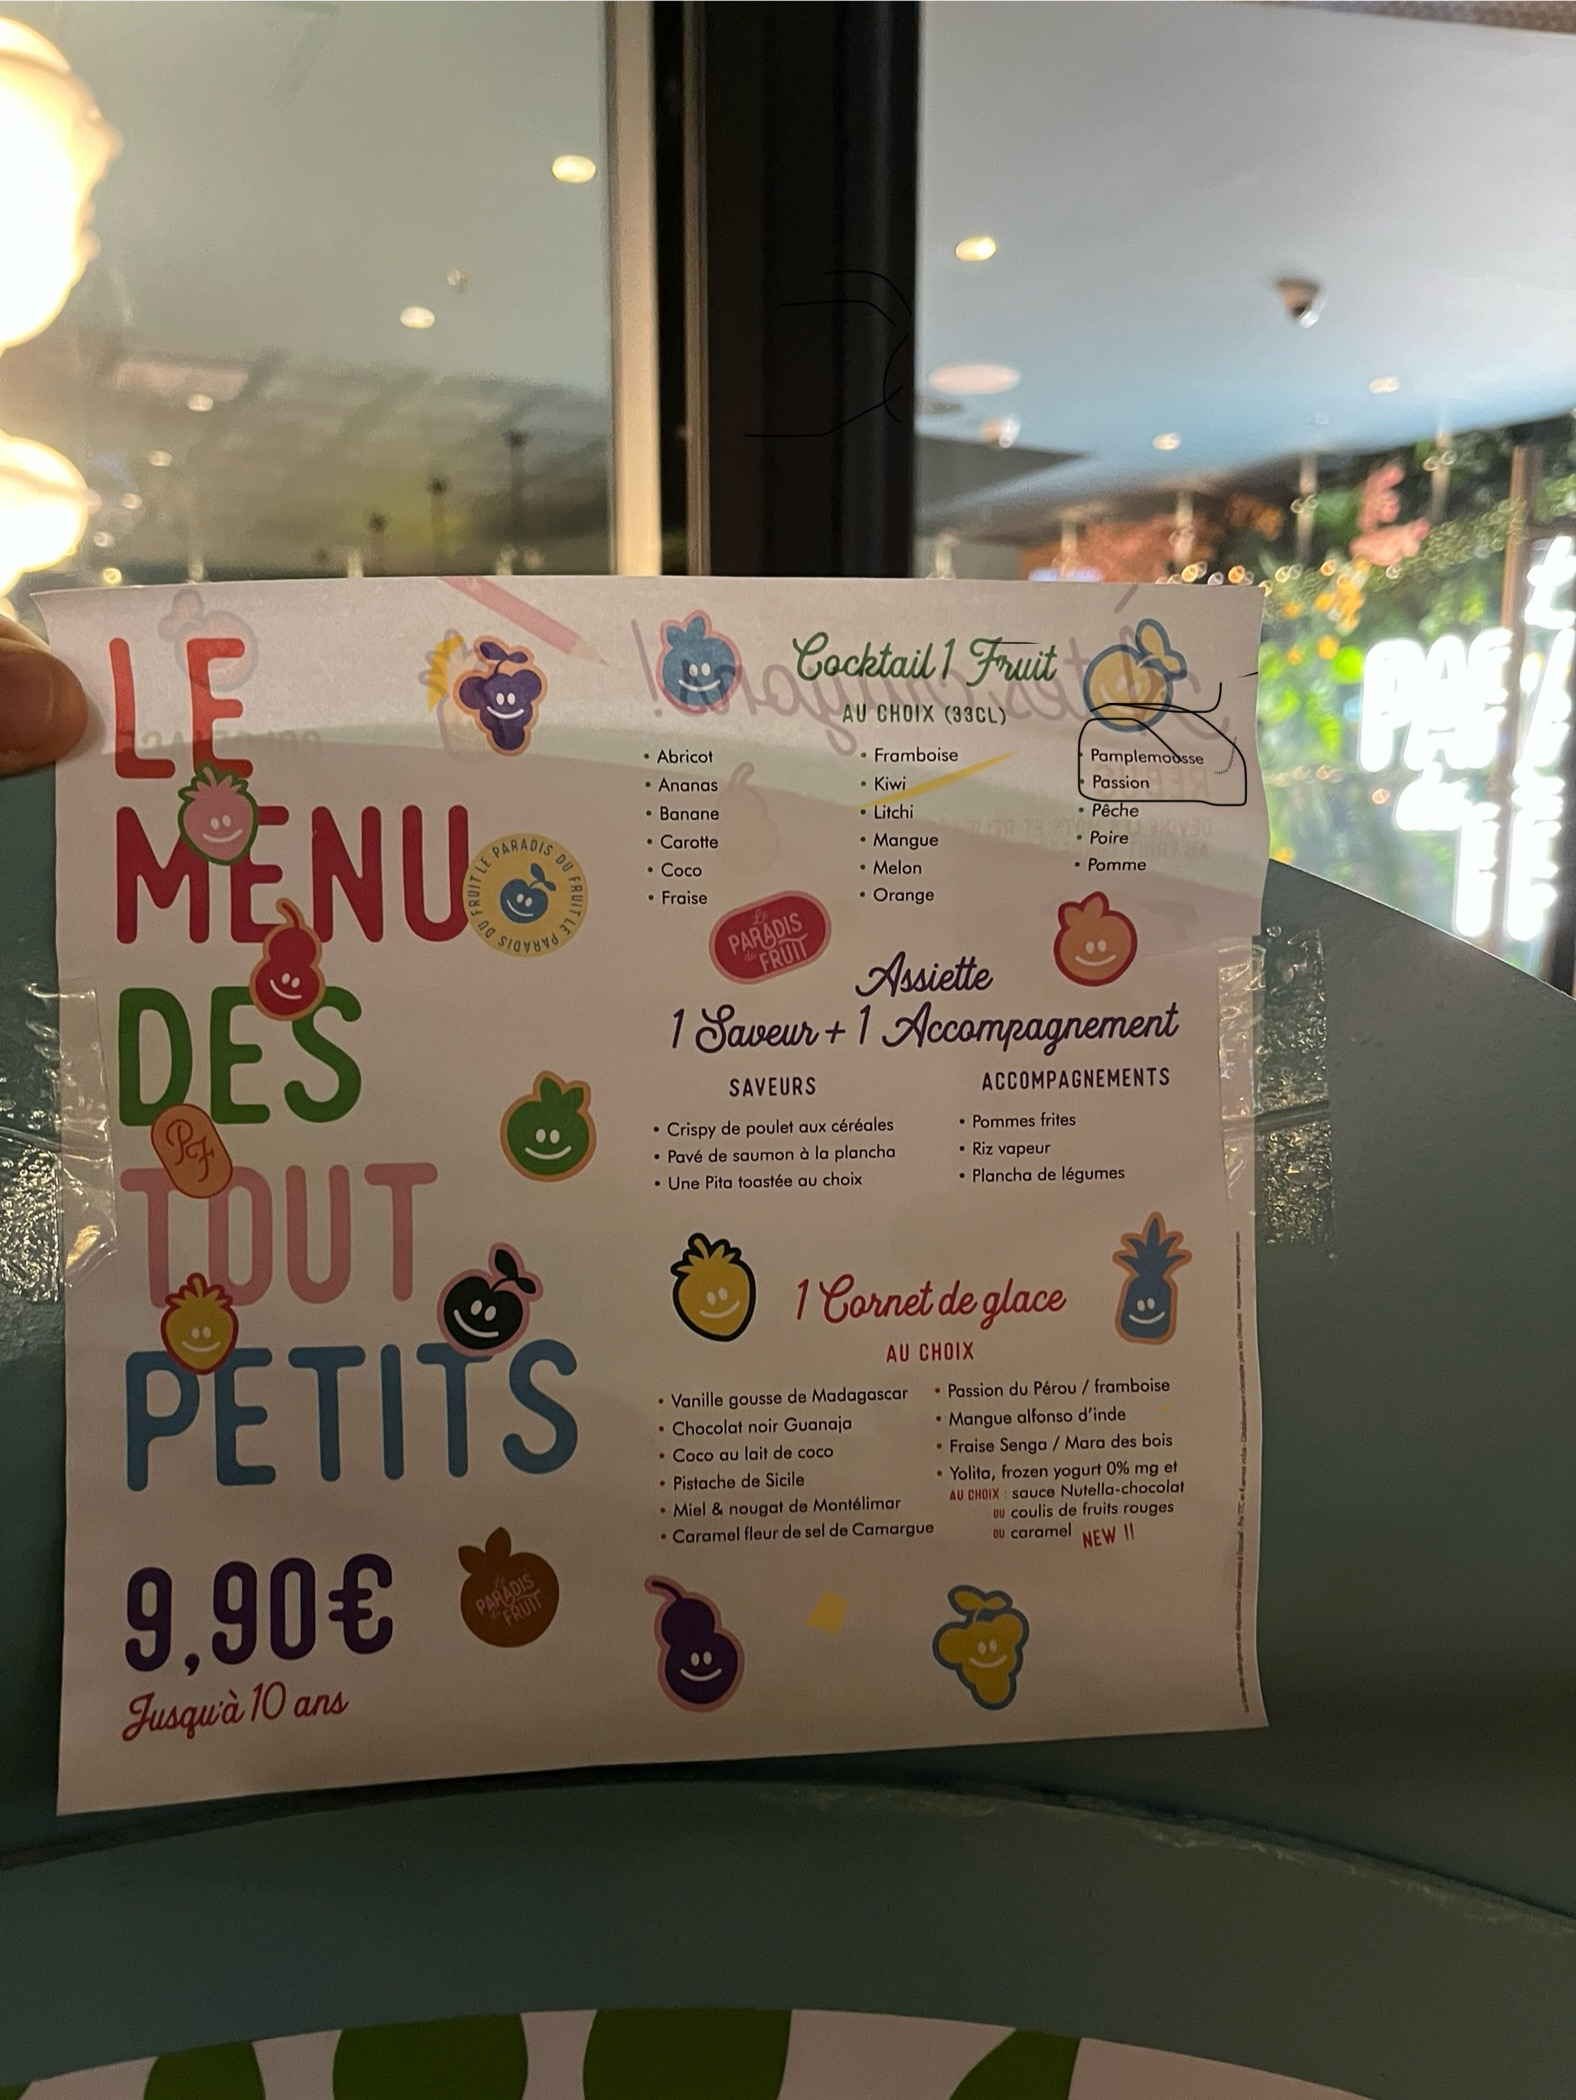 LE
MENU
DES
TOUT
PETITS
9,90€
Jusqu'à 10 ans
LE PARADIS DU FRUIT LE PARADIS DU FRUIT
PF
Le
PARADIS
du
FRUIT
Cocktail 1 Fruit
AU CHOIX (33CL)
• Abricot
• Ananas
• Banane
• Carotte
• Coco
• Fraise
• Framboise
• Kiwi
• Litchi
• Mangue
• Melon
• Orange
• Pamplemousse
• Passion
• Pêche
• Poire
• Pomme
Le
PARADIS
du
FRUIT
Assiette
1 Saveur + 1 Accompagnement
SAVEURS
• Crispy de poulet aux céréales
• Pavé de saumon à la plancha
• Une Pita toastée au choix
ACCOMPAGNEMENTS
• Pommes frites
• Riz vapeur
• Plancha de légumes
1 Cornet de glace
AU CHOIX
• Vanille gousse de Madagascar
• Chocolat noir Guanaja
• Coco au lait de coco
• Pistache de Sicile
• Miel & nougat de Montélimar
• Caramel fleur de sel de Camargue
• Passion du Pérou / framboise
• Mangue alfonso d'inde
• Fraise Senga / Mara des bois
• Yolita, frozen yogurt 0% mg et
AU CHOIX : sauce Nutella-chocolat
OU coulis de fruits rouges
OU caramel NEW !!